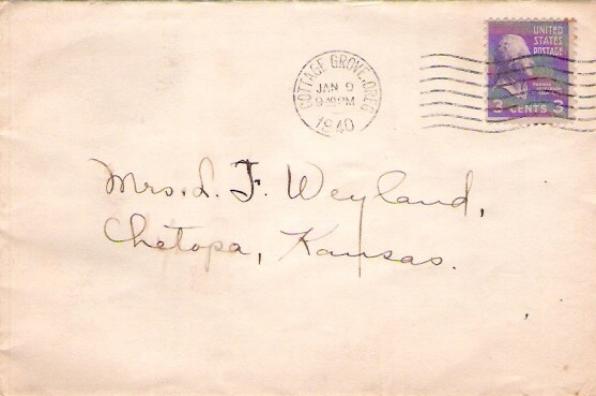 UNITED
STATES
POSTAGE
3 CENTS 3
COTTAGE GROVE, OREG.
JAN 9
1940
Mrs. L. F. Weyland,
Chetopa, Kansas.